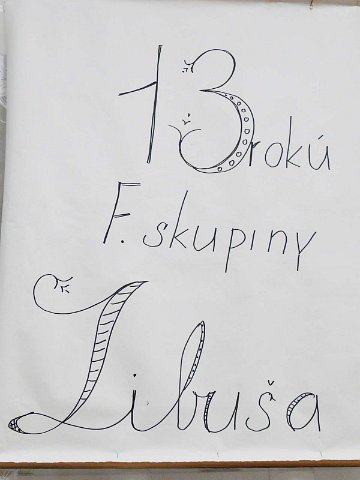 13 rokú
F. skupiny
Libuša